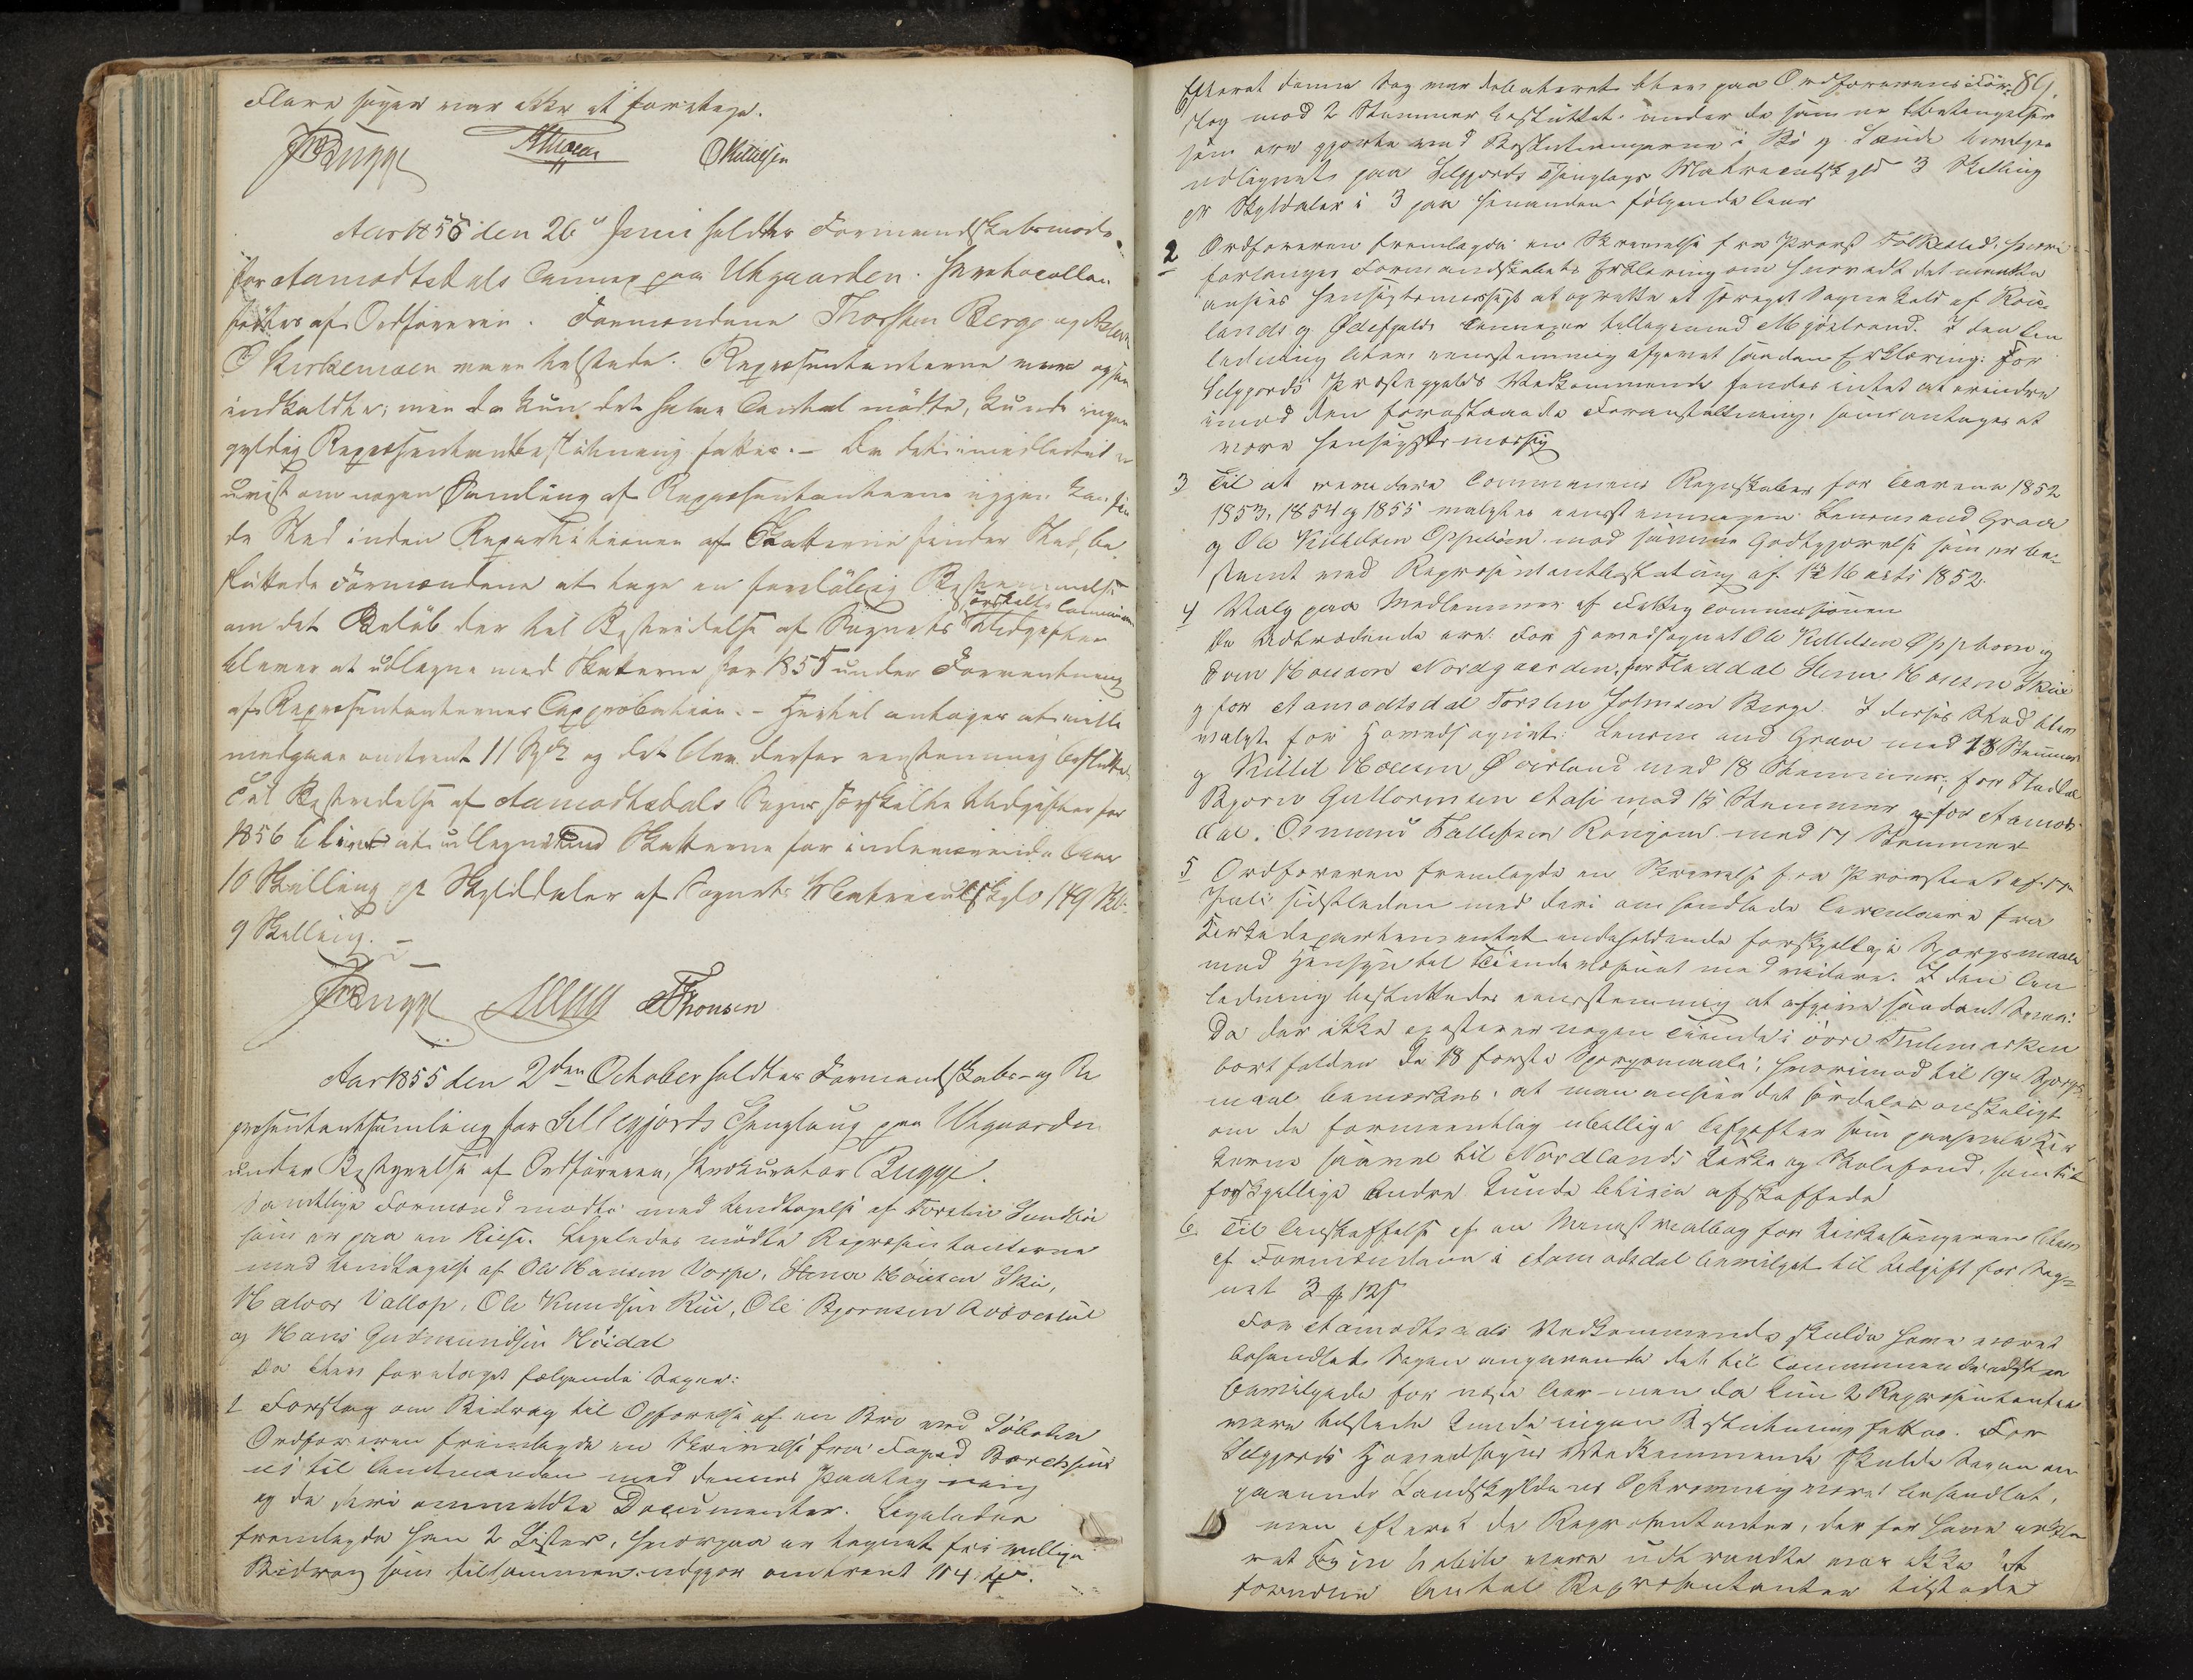 Flere sager var ikke at foretage.
JM Bugge AThoresen OKittilsen
Aar 1855 den 26de Juni holdtes Formandskabsmøde
for Aamodtsdals Annex paa Uhgaarden. Protocollen
førtes af Ordføreren. Formændene Thorsten Berge og Aslak
O Kirkemoen vare tilstede. Repræsentanterne vare ogsaa
indkaldte; men da kun det halve Antal mødte, kunde ingen
gyldig Repræsentantbeslutning fattes. – Da det imidlertid er
uvist om nogen Samling af Repræsentanterne igjen kan fin
de Sted inden Repartitionen af Skatterne finder Sted, be
sluttede Formændene at tage en foreløbig Bestemmelse
om det Beløb der til Bestridelse af Sognets særskilte Commune Udgifter
bliver at udligne med Skatterne for 1855 under Forventning
af Repræsentanternes Approbation. – Hertil antages at ville
medgaae omtrent 11 Spd og det blev derfor eenstemmig besluttet
Til Bestridelse af Aamodtsdals Sogns særskilte Udgifter for
1856 bliver at udligne med Skatterne for indeværende Aar
10 Skilling pr Skylddaler af Sognets Matriculskyld 149 Skd
9 Skilling. –
JM Bugge AThonsen
Aar 1855 den 2den October holdtes Formandskabs- og Re
præsentantsamling for Sillegjords Thinglaug paa Uhgaarden
under Bestyrelse af Ordføreren, Prokurator Bugge.
Samtlige Formænd mødte med Undtagelse af Torstein Sundbøe
som er paa en Reise. Ligeledes mødte Repræsentanterne
med Undtagelse af Ole Hansen Vorpe, Stener Houson Skie,
Halvor Vallop, Ole Knudsen Rui, Ole Bjørnsen
og Hans Gudmundsen Høidal
Da blev foretaget følgende Sager:
1 Forslag om Bidrag til Opførelse af en Bro ved
Ordføreren fremlagde en Skrivelse fra Foged Borchseni
us til Amtmanden med dennes Paategning
og de deri ommeldte Documenter. Ligeledes
fremlagde han 2 Lister, hvorpaa er tegnet frivillige
Bidrag som tilsammen udgjør omtrent 114 Spd.
89.
Efterat denne Sag var debatteret blev paa Ordførerens For-
slag mod 2 Stemmer besluttet: under de samme Betingelser
som ere gjorte ved Beslutningerne i Bø og Lunde bevilges
udlignet paa Silgjords Thinglags Matriculskyld 3 Skilling
pr Skylddaler i 3 paa hinanden følgende Aar
2 Ordføreren fremlagde en Skrivelse fra Provst Folkestad, hvori
forlanges Formandskabets Erklæring om hvorvidt det maatte
ansees hensigtsmæssigt at oprette et særeget Sognekald af Rau-
lands og Øifjelds Annexer tilligemed Mjøstrand. I den An
ledning blev eenstemmig afgivet saadan Erklæring: For
Silgjords Præstegjelds Vedkommende fandtes intet at erindre
imod den foreslaaede Foranstaltning, som antages at
være hensigtsmæssig
3 Til at revidere Communens Regnskaber for Aarene 1852
1853, 1854 og 1855 valgtes eenstemmigen Lensmand Grave
og Ole Kittilsen Oppebøen mod samme Godtgjørelse som er be-
stemt ved Repræsentantbeslutning af 12 Marts 1852.
4 Valg paa Medlemmer af Fattigcommissionen
De Udtrædende ere: For Hovedsognet Ole Kittilsen Oppeboen og
Even Houson Nordgaarden, for Fladdal Stener Houson Skie
og for Aamodtsdal Torsten Johnsen Berge. I deres Sted blev
valgt for Hovedsognet: Lensmand Grave med 18 Stemmer
og Kittil Houson Øverland med 18 Stemmer, for Fladdal
Bjørn Guttormsen Aase med 15 Stemmer og for Aamots
dal: Osmund Tallefsen Rönjom med 17 Stemmer
5 Ordføreren fremlagde en Skrivelse fra Provstiet af 17
Juli sidstleden med deri omhandlede Circulaire fra
Kirkedepartementet indeholdende forskjellige Spørgsmaale
med Hensyn til Tiendevæsenet med videre. I den An
ledning besluttedes eenstemmig at afgive saadant Svar:
Da der ikke existerer nogen Tiende i øvre Thelemarken
bortfalder de 18 første Spørgsmaale; hvorimod til 19de Spørgs
maal bemærkes, at man anseer det særdeles ønskeligt
om de formeentlig ubillige Afgifter som paahvile Kir
kerne saavel til Nordlands Kirke og Skolefond, som til
forskjellige Andre kunde blive afskaffede
6. Til Anskaffelse af en Menst Psalmebog for Kirkesangeren blev
af Formændene i Aamodsdal bevilget til Udgift for Sog-
net 3 Spd 12 s
For Aamodtsdals Vedkommende skulde have været
behandlet Sagen angaaende det til Communeudgifter
bevilgede for næste Aar – men da kun 2 Repræsentanter
vare tilstede kunde ingen Beslutning fattes. For
Silgjords Hovedsogns Vedkommende skulde Sagen an
gaaende Landskyldens Opkrævning været behandlet,
men efterat de Repræsentanter, der for have erklæ
ret sig inhabile vare udtraadte var ikke det
fornødne Antal Repræsentanter tilstede